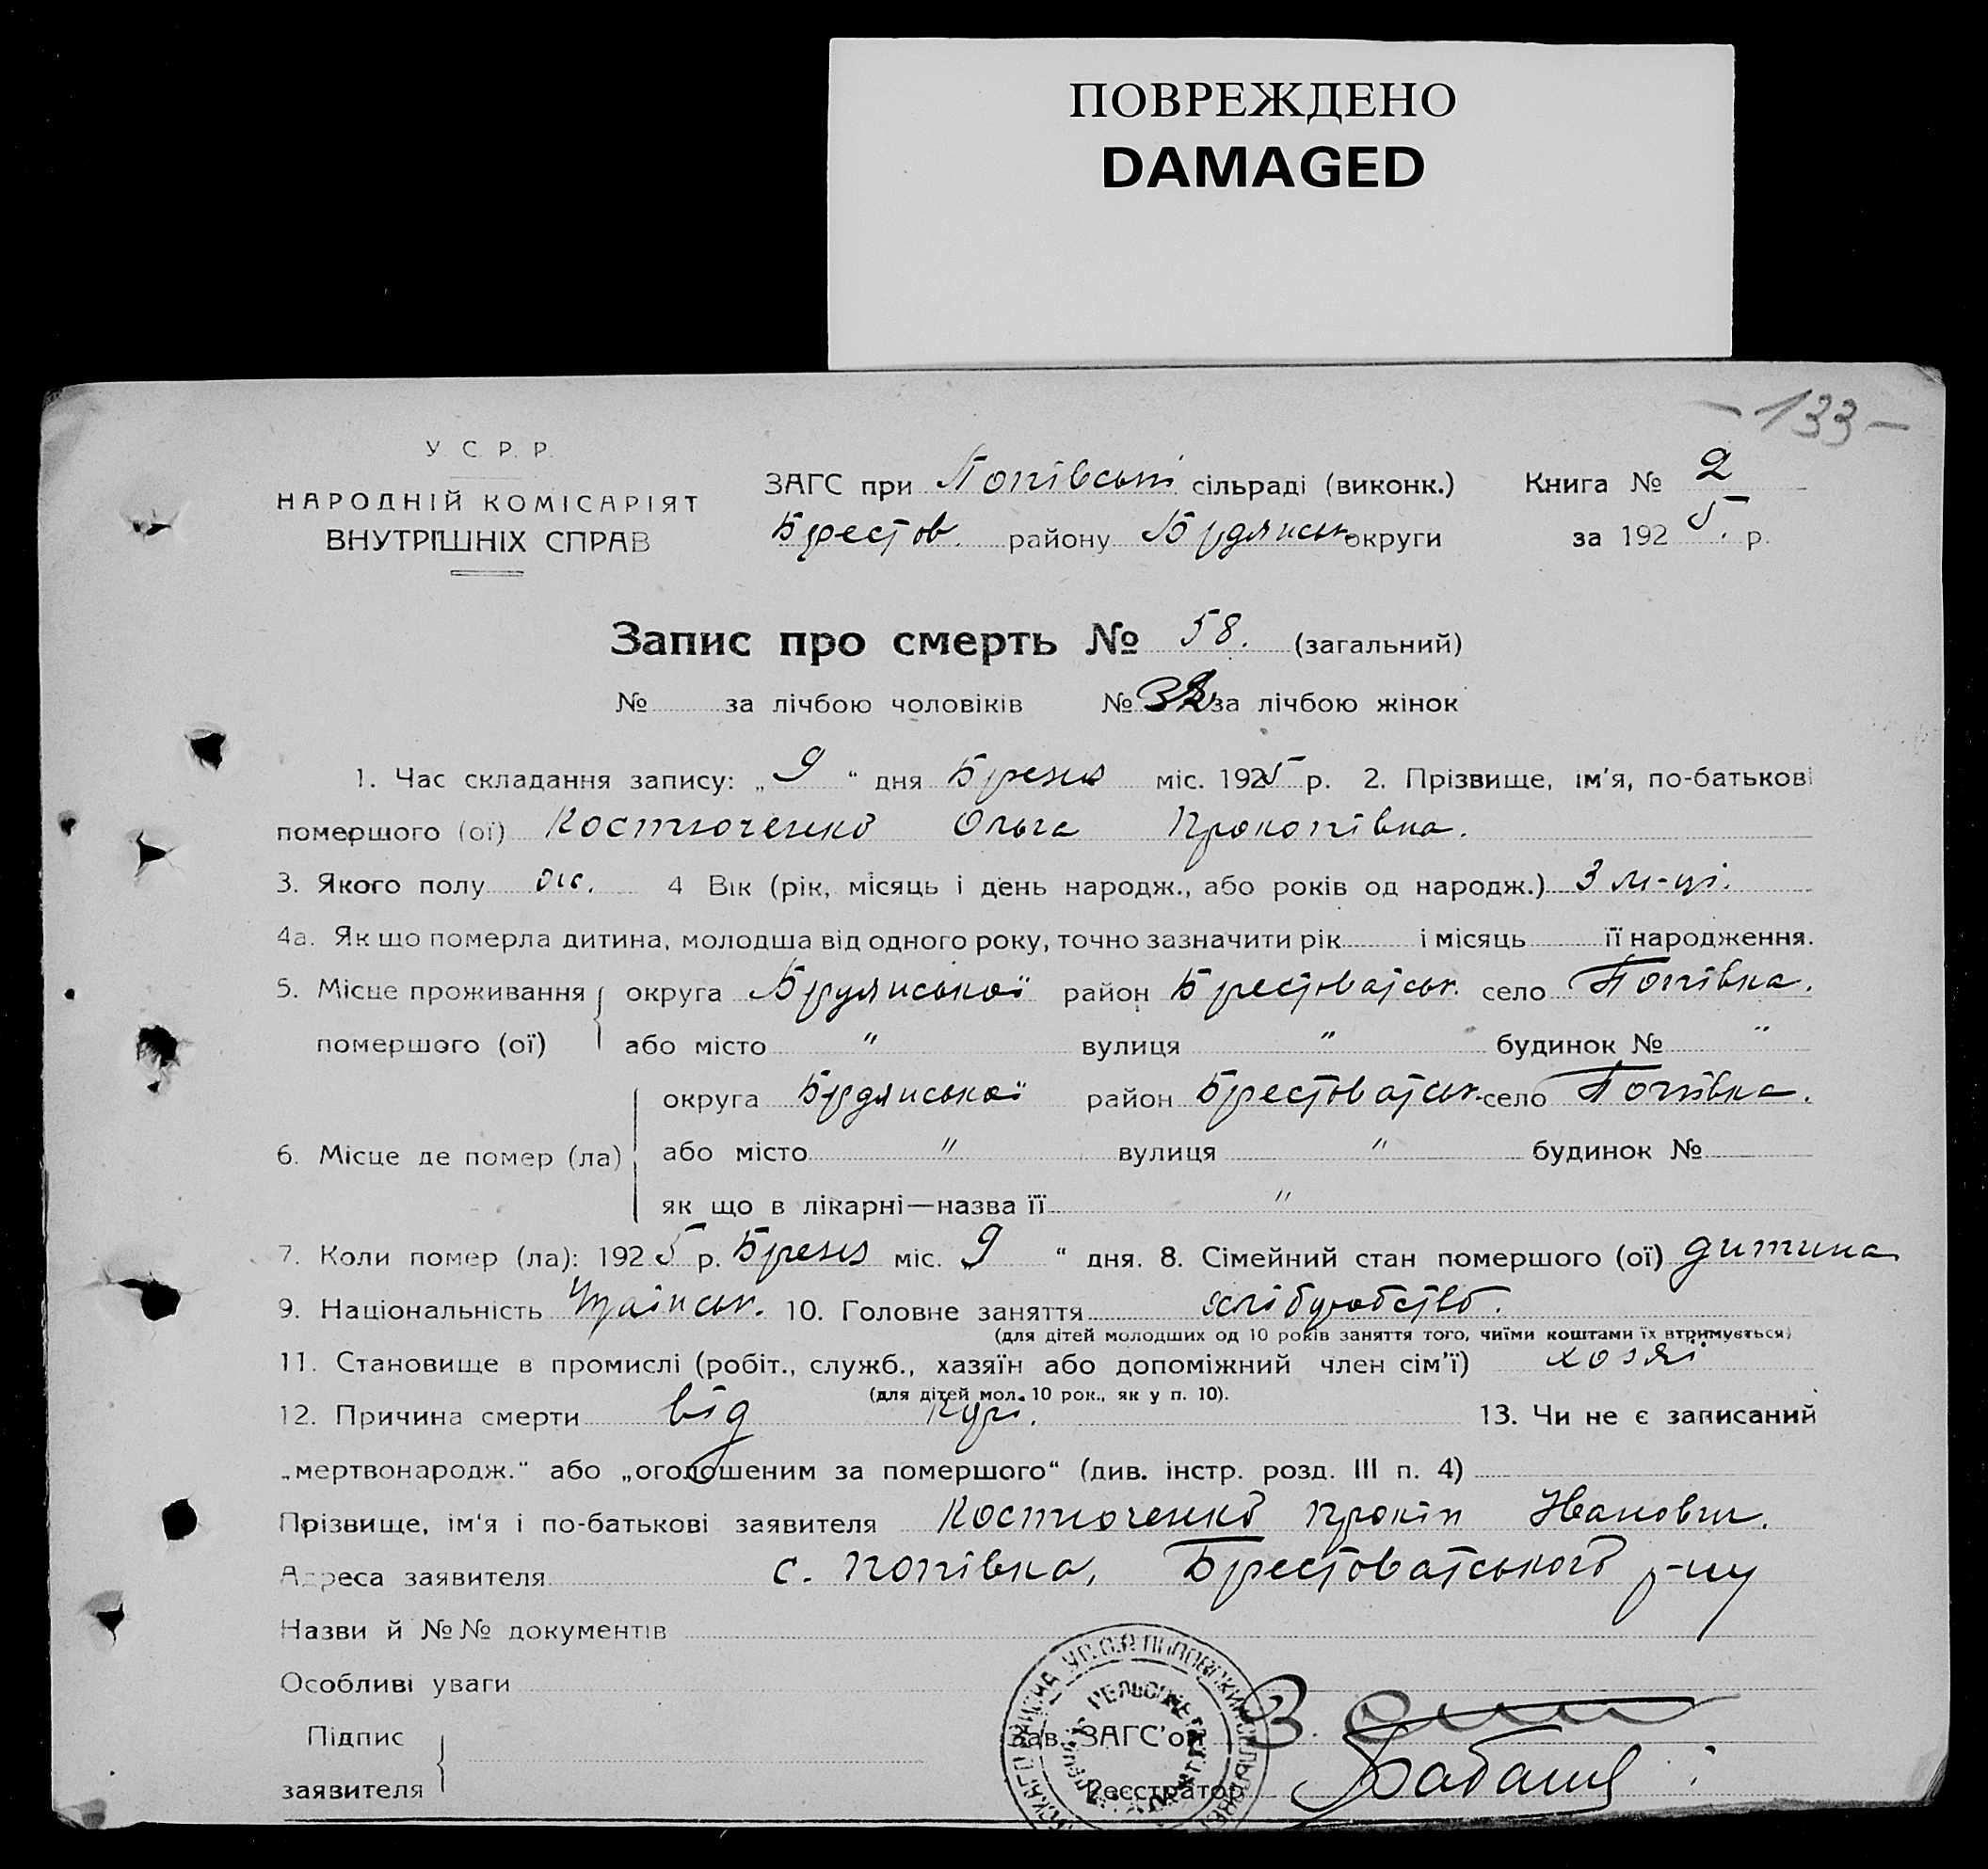 ПОВРЕЖДЕНО
DAMAGED
-133-
У С. Р. Р.
НАРОДНІЙ КОМІСАРІЯТ
ВНУТРІШНІХ СПРАВ
ЗАГС при Попівські сільраді (виконк.) Книга № 2
Брестов. району Брдянськ округи за 1925. р.
Запис про смерть № 58. (загальний)
№ за лічбою чоловіків № 32 за лічбою жінок
1. Час складання запису: „ 9 “ дня Брезня міс. 1925 р. 2. Прізвище, ім'я, по-батькові
помершого (ої) Костюченко Ольга Прокопівна.
3. Якого полу ж. 4 Вік (рік, місяць і день народж., або років од народж.) 3 м-ці.
4а. Як що померла дитина, молодша від одного року, точно зазначити рік і місяць її народження.
5. Місце проживання округа Брдянської район Брестоватськ. село Попівка.
помершого (ої) або місто " вулиця " будинок № "
округа Брдянської район Брестоватськ. село Попівка.
6. Місце де помер (ла) або місто " вулиця " будинок №
як що в лікарні—назва її "
7. Коли помер (ла): 1925 р. Брезня міс. 9 “ дня. 8. Сімейний стан помершого (ої) дитина
9. Національність Украінськ. 10. Головне заняття хлібробство.
(для дітей молодших од 10 років заняття того, чиїми коштами їх втримується)
11. Становище в промислі (робіт., служб., хазяїн або допоміжний член сім'ї)
(для дітей мол. 10 рок., як у п. 10).
12. Причина смерти від Курі. 13. Чи не є записаний
„мертвонародж.“ або „оголошеним за помершого“ (див. інстр. розд. III п. 4)
Прізвище, ім'я і по-батькові заявителя Костюченко Прокіп Іванович.
Адреса заявителя с. Попівка, Брестоватського р-ну
Назви й №№ документів
Особливі уваги
Підпис
заявителя
Зав. ЗАГС'ом
Реєстратор